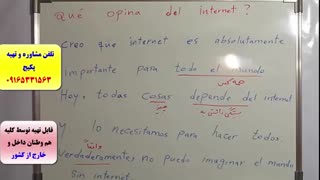 Qué opina del internet?
Creo que internet es absolutamente
importante para todo el mundo
همه کس
Hoy, todas cosas depende del internet
بستگی داشتن به
y lo necesitamos para hacer todos
واقعاً
Verdaderamentes no puedo imaginar el mando
sin internet
تلفن مشاوره و تهیه
پکیج
۰۹۱۶۵۳۳۱۵۶۳
قابل تهیه توسط کلیه
هم وطنان داخل و
خارج از کشور